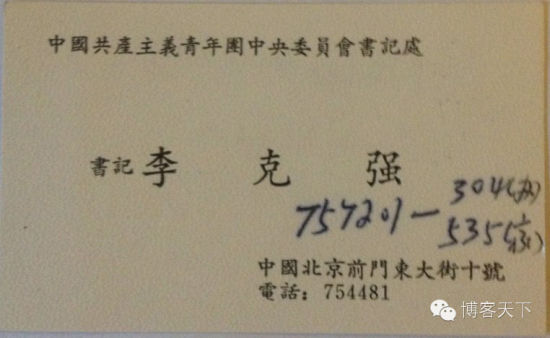 中國共產主義青年團中央委員會書記處
書記 李克强
757201—304(办)
535(家)
中國北京前門東大街十號
電話：754481
博客天下